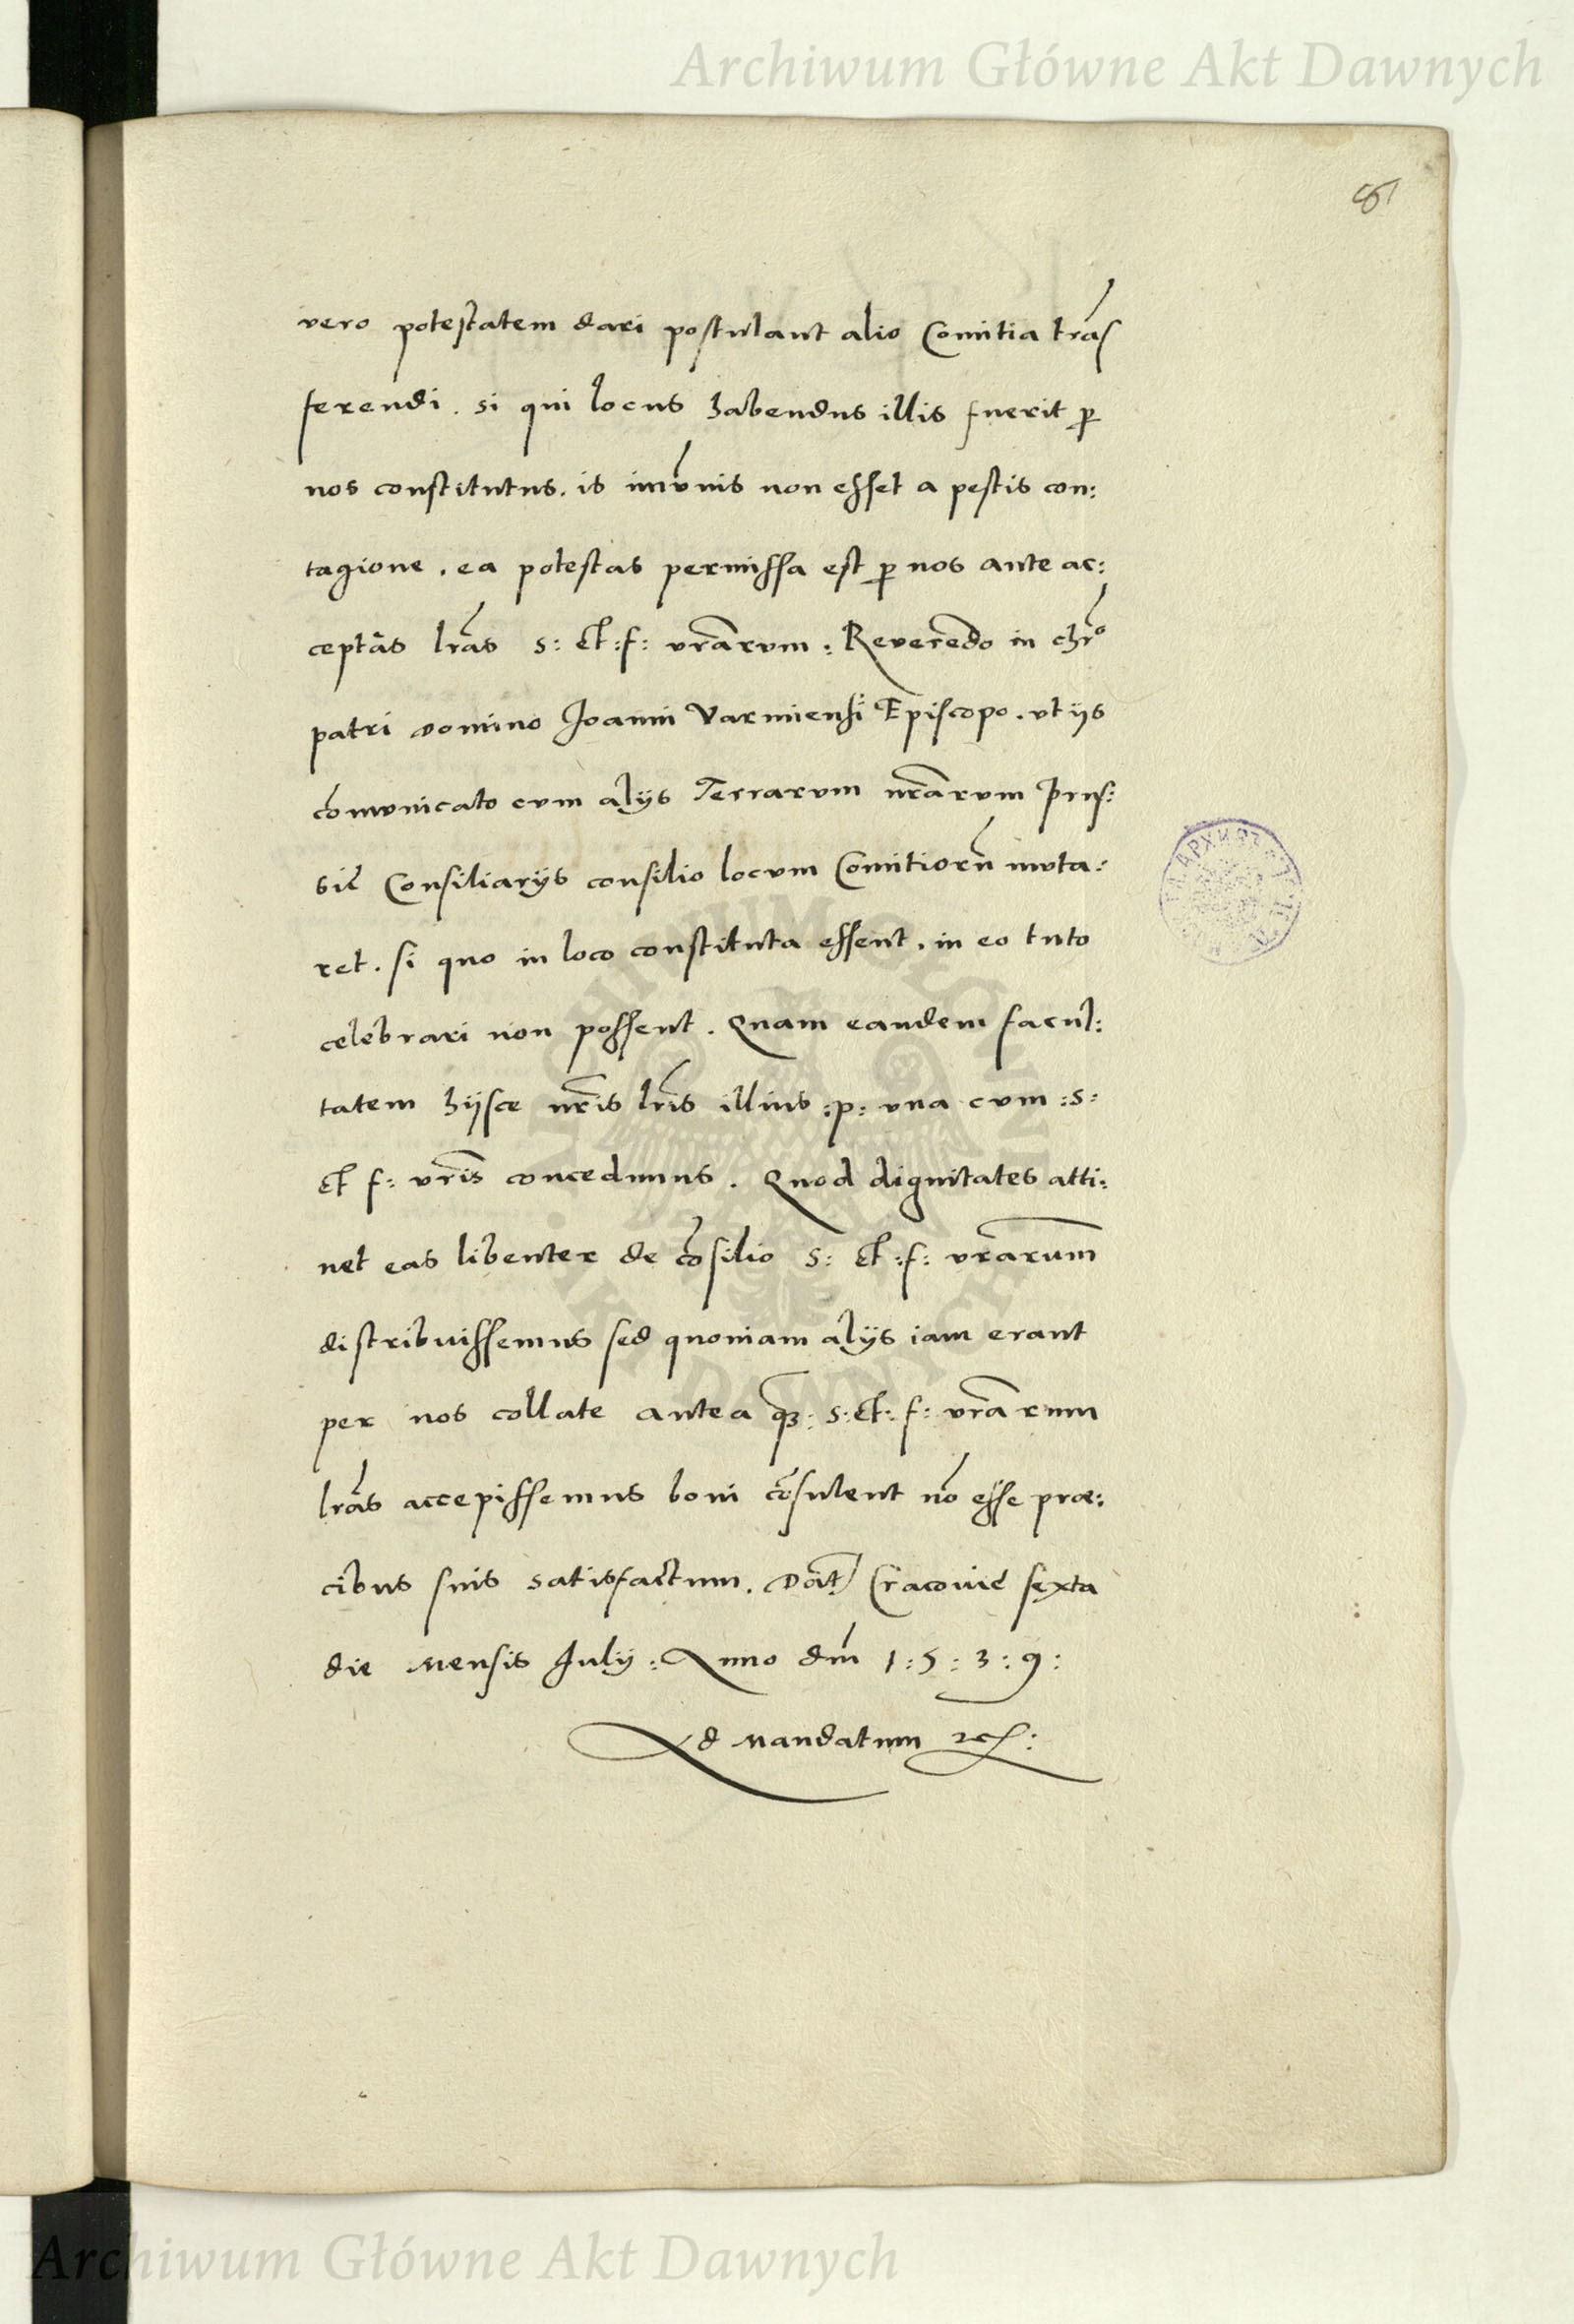 Archiwum Główne Akt Dawnych
81
vero potestatem dari postulant alio Comitia trãs
ferendi. si qui locus habendus illis fuerit p̱
nos constitutus. is imũnis non esset a pestis con:
tagione. ea potestas permissa est p̱ nos ante ac:
ceptas lr̃as s: et :f: vr̃arvm: Reverendo in chr̃o
patri domino Joanni Varmiensi Episcopo. vt ijs
cõmvnicato cvm alijs Terrarvm nr̃arvm Prus:
się Consiliarijs consilio locvm Comitiorũ mvta:
ret. si quo in loco constituta essent. in eo tuto
celebrari non possent. Quam eandem facul:
tatem hijsce nr̃is lr̃is illius :p: vna cvm :s:
et f: vr̃is concedimus. Quod dignitates atti:
net eas libenter de cõsilio s: et :f: vr̃arum
distribvissemus sed quoniam alijs iam erant
per nos collate antea q̃ȝ: s: et: f: vr̃arum
lr̃as accepissemus boni cõsulent nõ esse præ:
cibus suis satisfactum. Dat̃ Cracovię sexta
die Mensis Julij: Anno dñi 1:5:3:9:
Ad Mandatum ⁊c:
Archiwum Główne Akt Dawnych